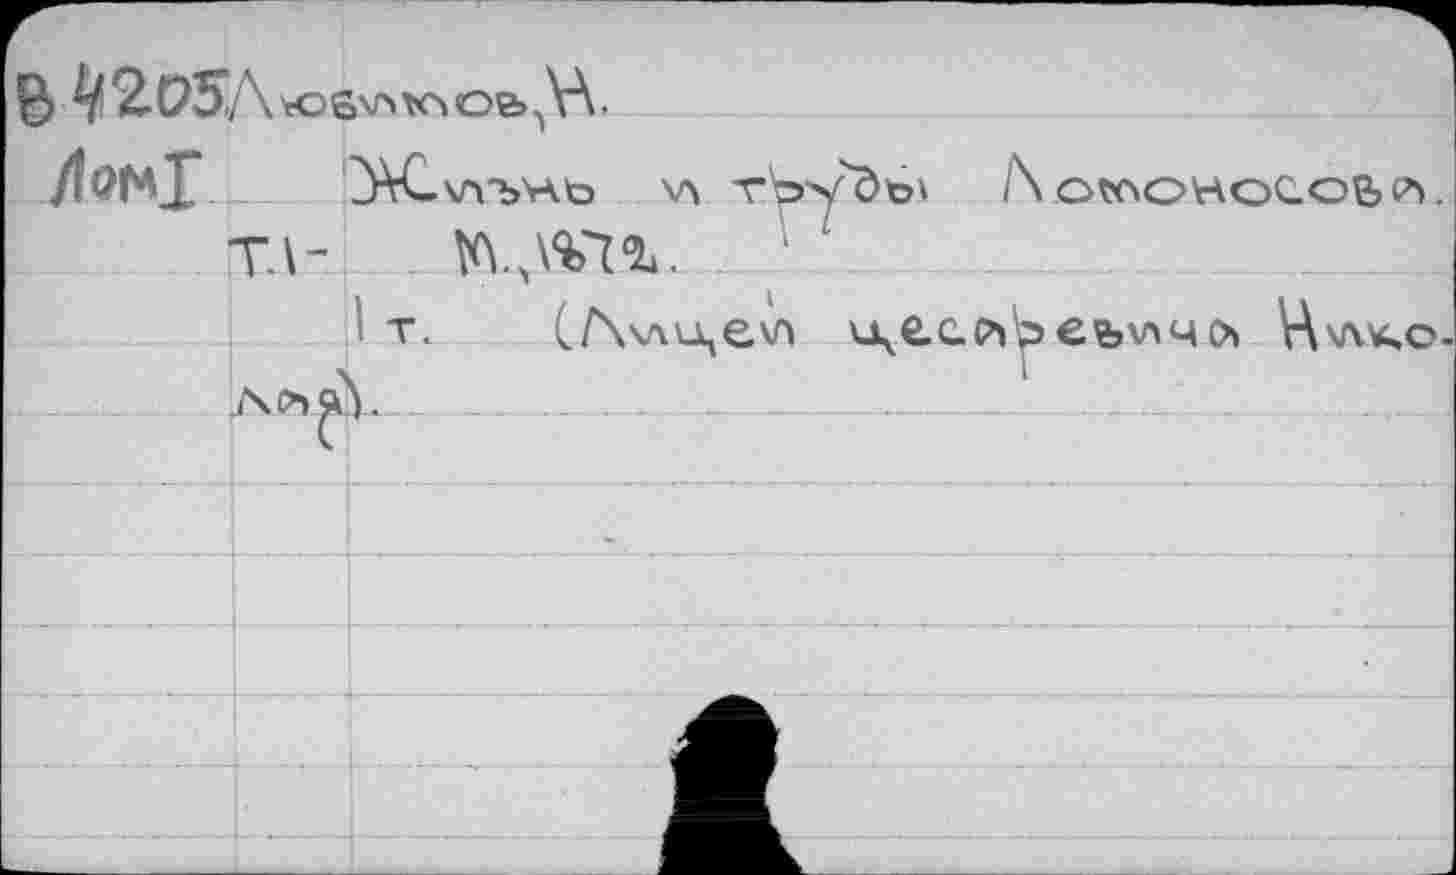 В 4205 Любимов, Н.
ЛомI Жизнь и труды Ломоносова.
Т.1- М., 1872.
1 т. (Лицей цесаревича Нико-
лая).